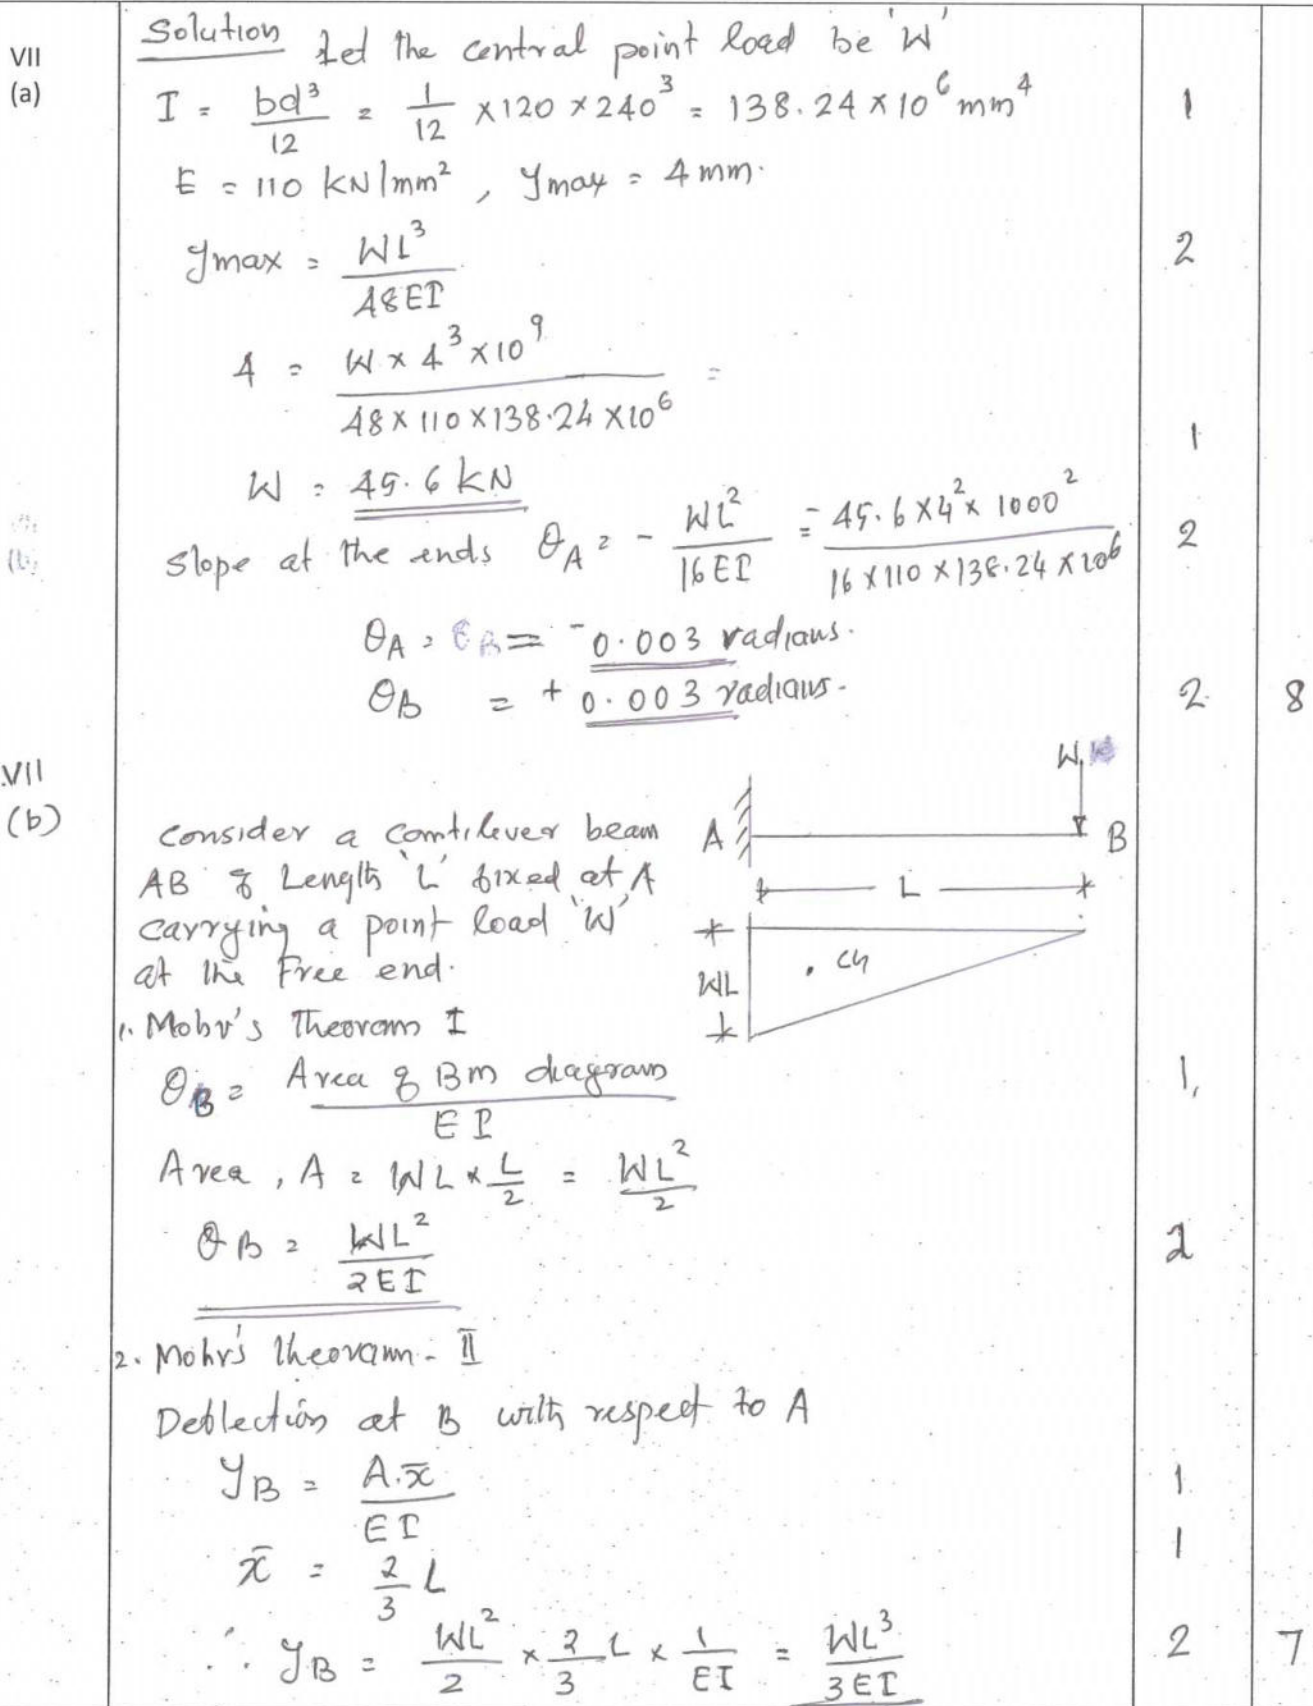 VII
(a)
Solution Let the central point load be 'W'
I = bd³/12 = 1/12 × 120 × 240³ = 138.24 × 10⁶ mm⁴ 1
E = 110 kN/mm², ymax = 4 mm.
ymax = WL³/48EI 2
4 = W × 4³ × 10⁹ / 48 × 110 × 138.24 × 10⁶ =
1
W = 45.6 kN
Slope at the ends θA = - WL²/16EI = - 45.6 × 4² × 1000² / 16 × 110 × 138.24 × 10⁶ 2
θA = θB = - 0.003 radians.
θB = + 0.003 radians. 2 8
VII
(b)
W
consider a comtilever beam
A B
AB of Length 'L' fixed at A
L
carrying a point load 'W'
. CG
at the Free end.
WL
1. Mohr's Theoram I
θB = Area of BM diagram / EI 1
Area, A = WL × L/2 = WL²/2
θB = WL²/2EI 2
2. Mohr's theoram - II
Deflection at B with respect to A
yB = A.x̄/EI 1
x̄ = 2/3 L 1
∴ yB = WL²/2 × 2/3 L × 1/EI = WL³/3EI 2 7